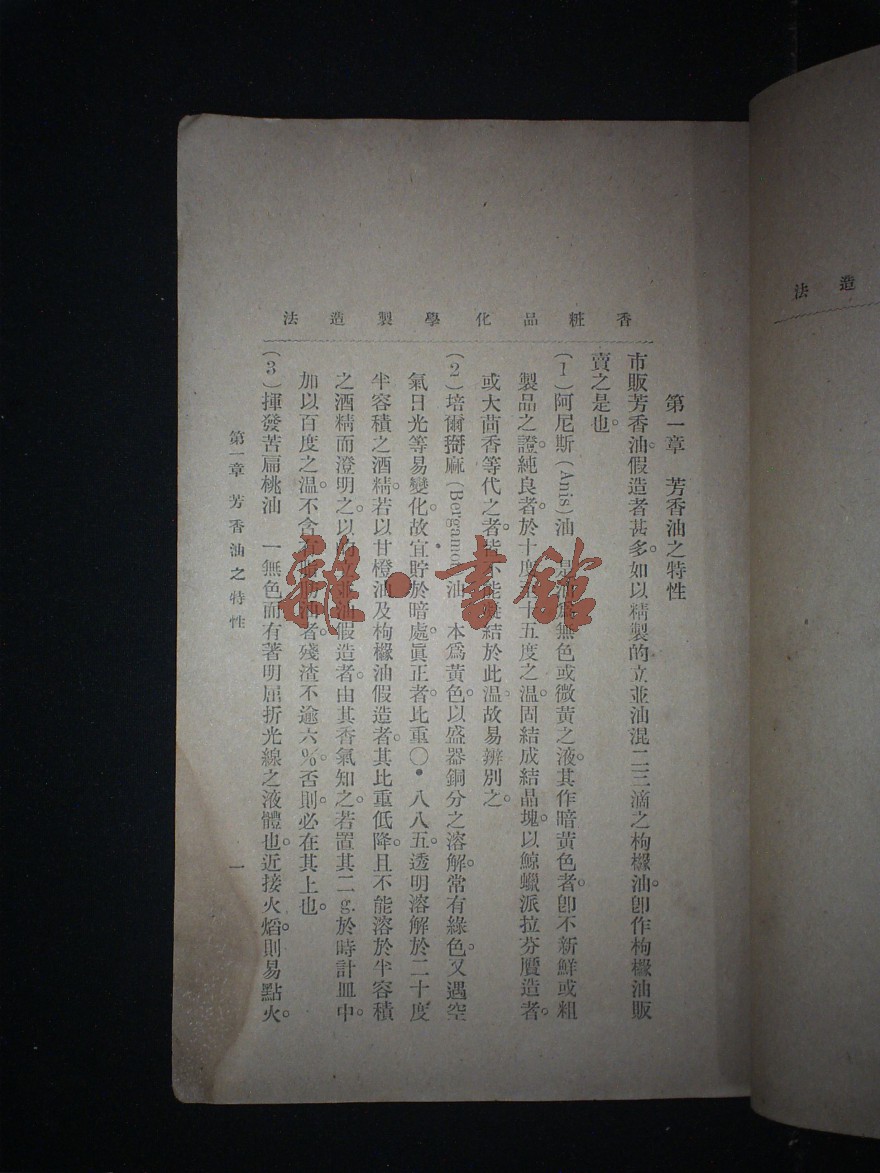 香粧品化學製造法
第一章 芳香油之特性
市販芳香油。假造者甚多。如以精製的立並油混二三滴之枸櫞油。卽作枸櫞油販
賣之是也。
(1)阿尼斯(Anis)油 是油爲無色或微黃之液。其作暗黃色者。卽不新鮮或粗
製品之證。純良者。於十度至十五度之溫。固結成結晶塊。以鯨蠟派拉芬贋造者。
或大茴香等代之者。皆不能凝結於此溫。故易辨別之。
(2)培爾掰麻(Bergamot)油 本爲黃色。以盛器銅分之溶解。常有綠色。又遇空
氣日光等易變化。故宜貯於暗處。眞正者。比重〇•八八五。透明溶解於二十度
半容積之酒精。若以甘橙油及枸櫞油假造者。其比重低降。且不能溶於半容積
之酒精而澄明之。以的立並油假造者。由其香氣知之。若置其二g.於時計皿中。
加以百度之溫。不含有脂肪油者。殘渣不逾六%。否則。必在其上也。
(3)揮發苦扁桃油 一無色而有著明屈折光線之液體也。近接火熖。則易點火。
第一章 芳香油之特性
一
造法
雜·書館